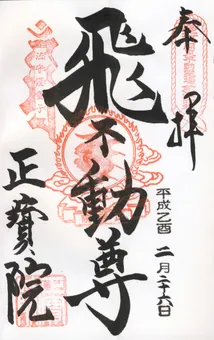 奉拝
平成乙酉 二月二十六日
飛不動尊
正寶院